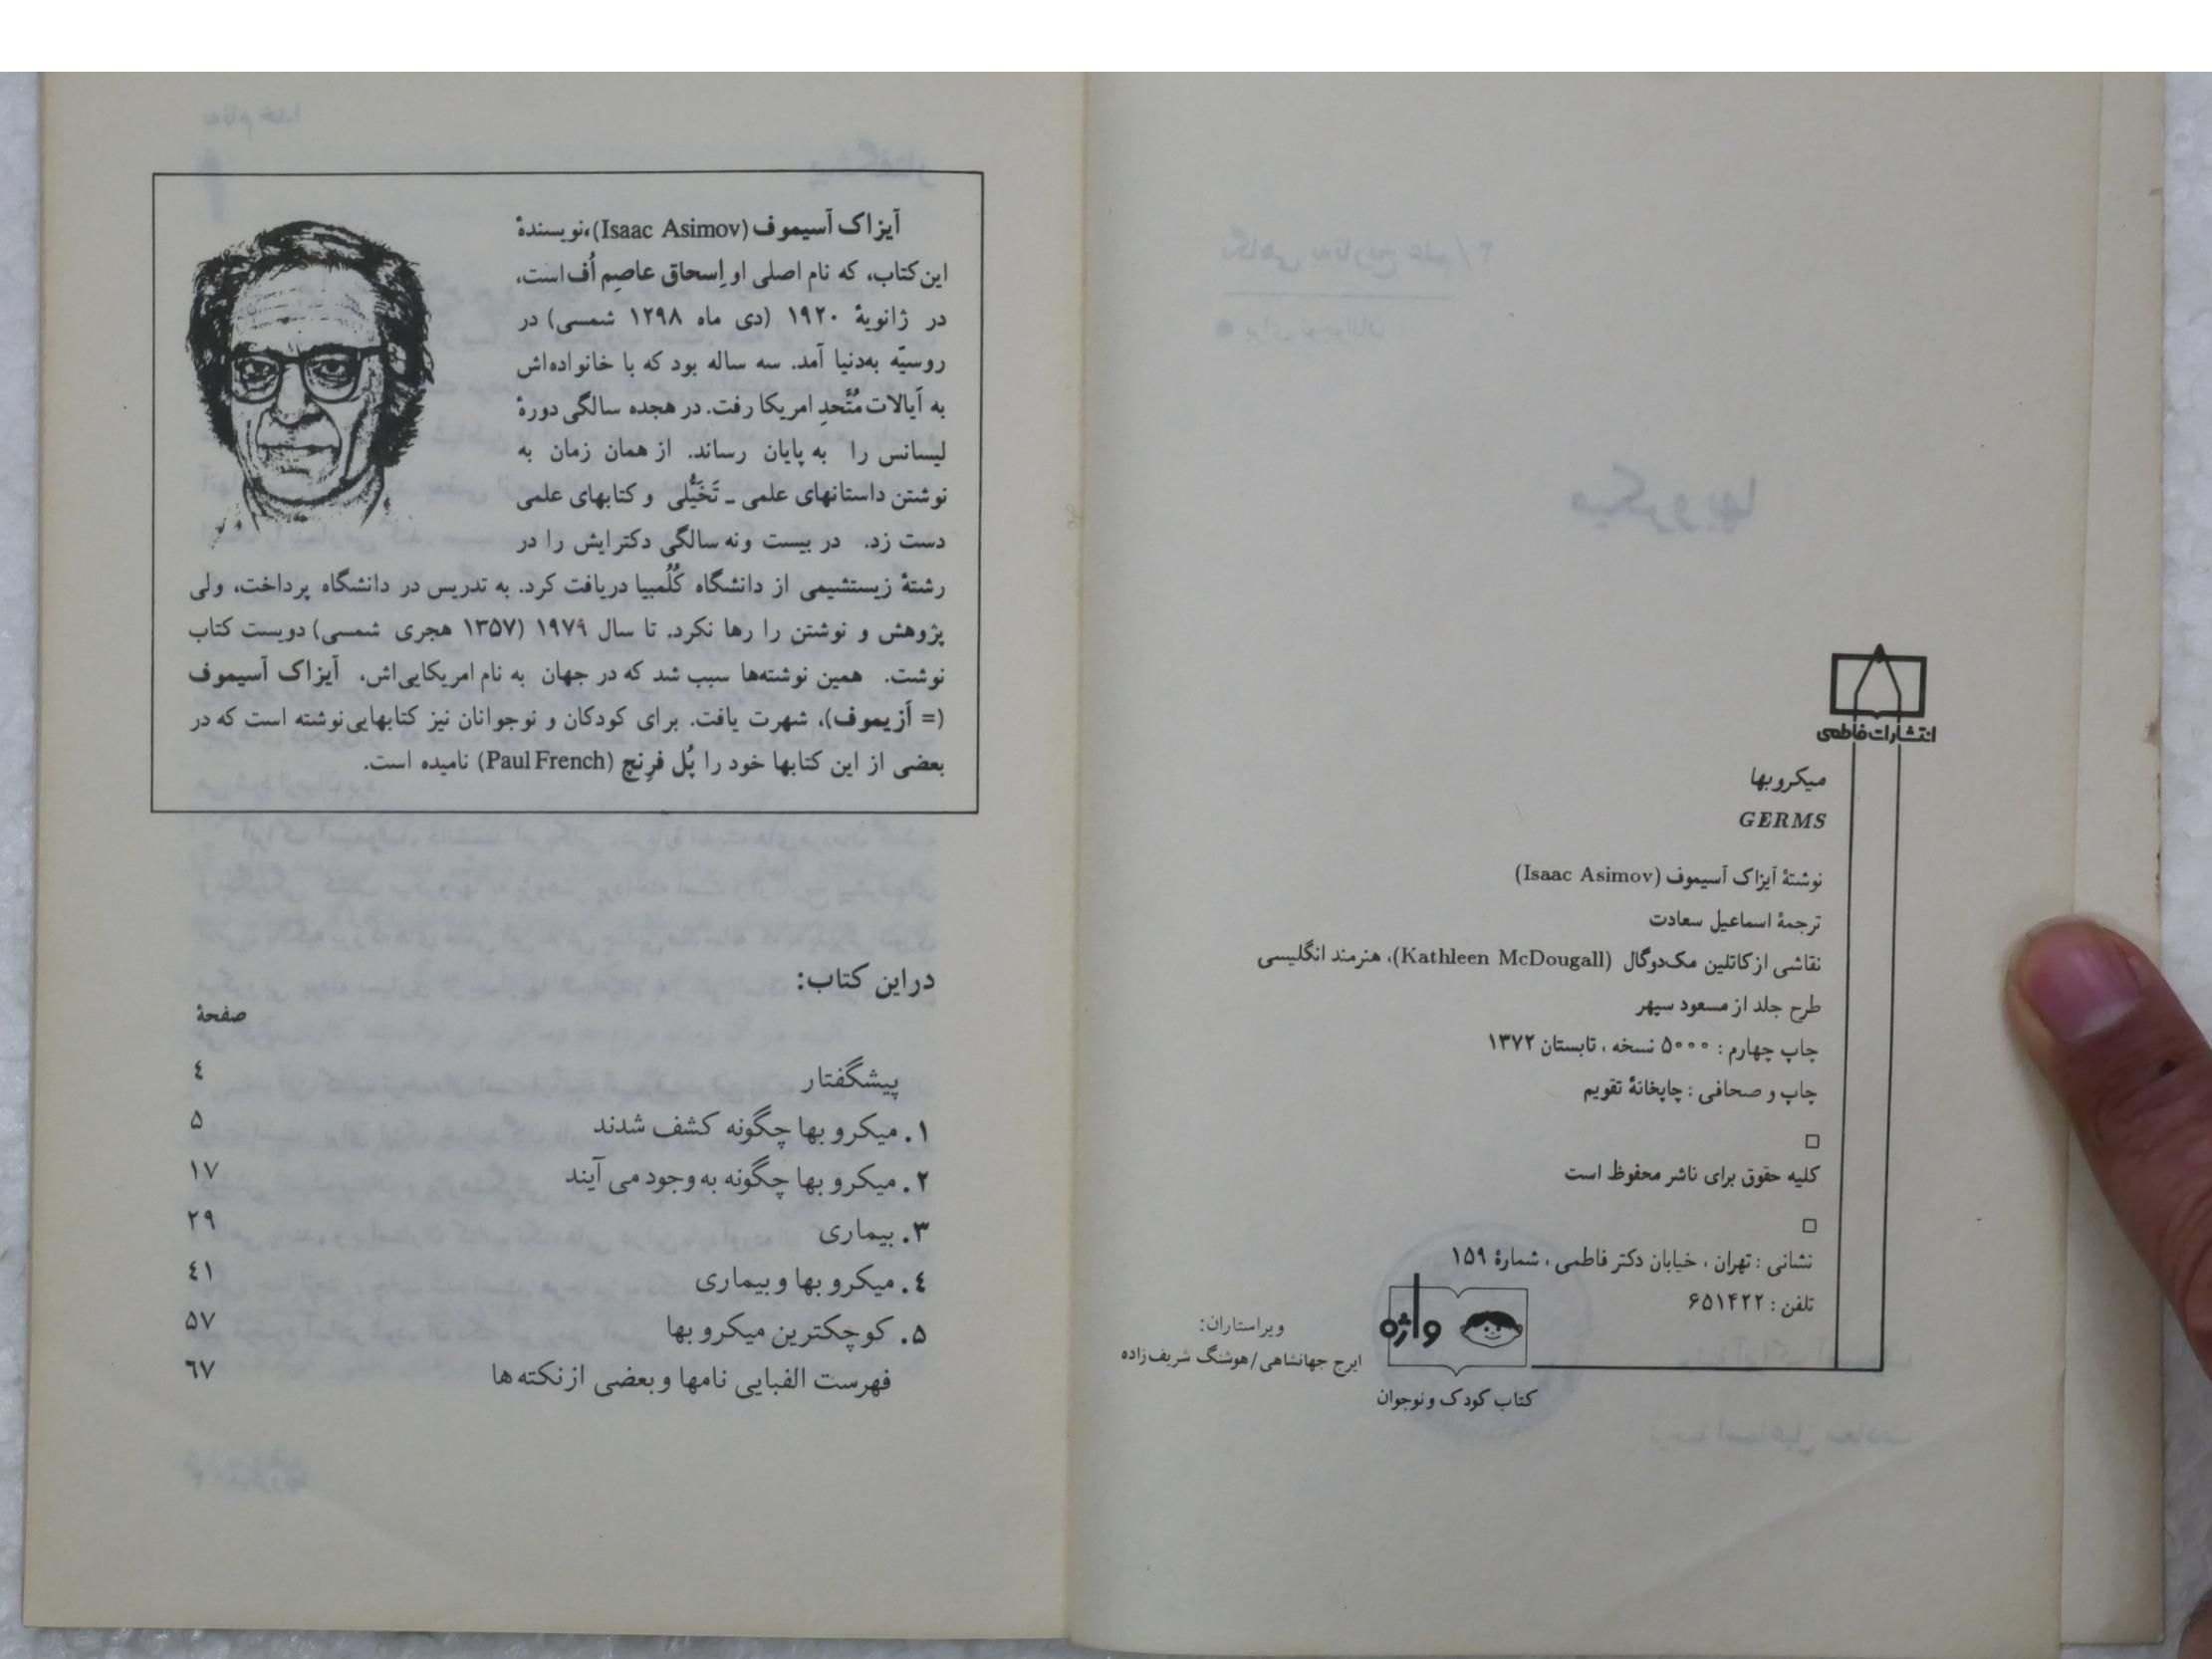 انتشارات فاطمی
میکروبها
GERMS
نوشتهٔ آیزاک آسیموف (Isaac Asimov)
ترجمهٔ اسماعیل سعادت
نقاشی از کاتلین مک‌دوگال (Kathleen McDougall)، هنرمند انگلیسی
طرح جلد از مسعود سپهر
چاپ چهارم : ۵۰۰۰ نسخه ، تابستان ۱۳۷۲
چاپ و صحافی : چاپخانهٔ تقویم
کلیه حقوق برای ناشر محفوظ است
نشانی : تهران ، خیابان دکتر فاطمی ، شمارهٔ ۱۵۹
تلفن : ۶۵۱۴۲۲
واژه
کتاب کودک و نوجوان
ویراستاران:
ایرج جهانشاهی/هوشنگ شریف‌زاده
آیزاک آسیموف (Isaac Asimov)،نویسندهٔ
این کتاب، که نام اصلی او اِسحاق عاصِم اُف است،
در ژانویهٔ ۱۹۲۰ (دی ماه ۱۲۹۸ شمسی) در
روسیّه به‌دنیا آمد. سه ساله بود که با خانواده‌اش
به اَیالات مُتَّحدِ امریکا رفت. در هجده سالگی دورهٔ
لیسانس را به پایان رساند. از همان زمان به
نوشتن داستانهای علمی ـ تَخَیُّلی و کتابهای علمی
دست زد. در بیست و نه سالگی دکترایش را در
رشتهٔ زیستشیمی از دانشگاه کُلُمبیا دریافت کرد. به تدریس در دانشگاه پرداخت، ولی
پژوهش و نوشتن را رها نکرد. تا سال ۱۹۷۹ (۱۳۵۷ هجری شمسی) دویست کتاب
نوشت. همین نوشته‌ها سبب شد که در جهان به نام امریکایی‌اش، آیزاک آسیموف
(= اَزیموف)، شهرت یافت. برای کودکان و نوجوانان نیز کتابهایی نوشته است که در
بعضی از این کتابها خود را پُل فرِنچ (Paul French) نامیده است.
در این کتاب:
صفحهٔ
پیشگفتار ٤
۱. میکروبها چگونه کشف شدند ۵
۲. میکروبها چگونه به وجود می آیند ۱۷
۳. بیماری ۲۹
٤. میکروبها و بیماری ٤۱
۵. کوچکترین میکروبها ۵۷
فهرست الفبایی نامها و بعضی از نکته ها ٦۷